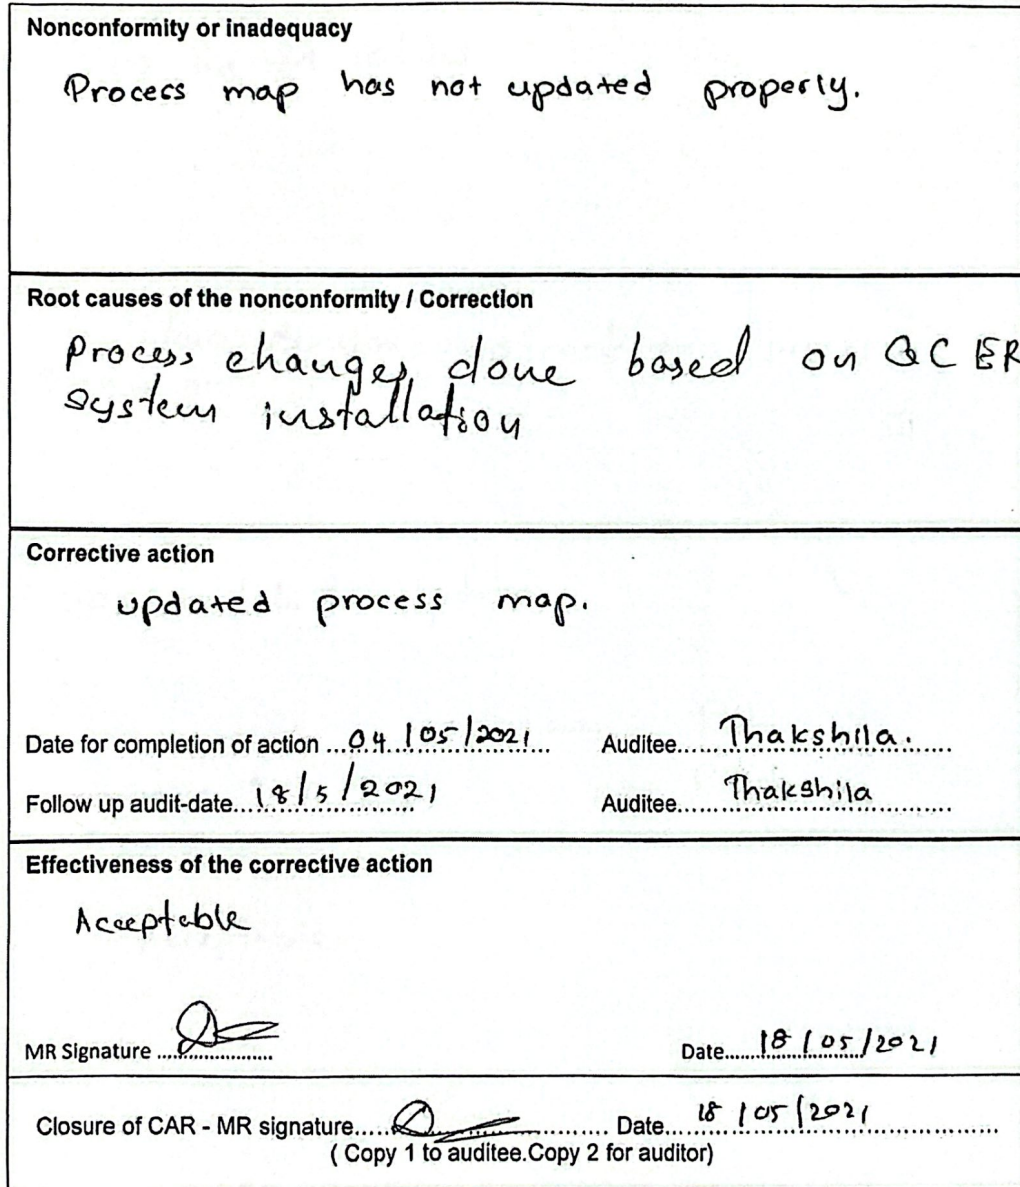 Nonconformity or inadequacy
Process map has not updated properly.
Root causes of the nonconformity / Correction
Process changes done based on QC ER
system installation
Corrective action
updated process map.
Date for completion of action ...04/05/2021... Auditee......Thakshila.......
Follow up audit-date...18/5/2021 Auditee......Thakshila.......
Effectiveness of the corrective action
Acceptable
MR Signature ................... Date......18/05/2021
Closure of CAR - MR signature.............................. Date...18/05/2021...................
( Copy 1 to auditee.Copy 2 for auditor)